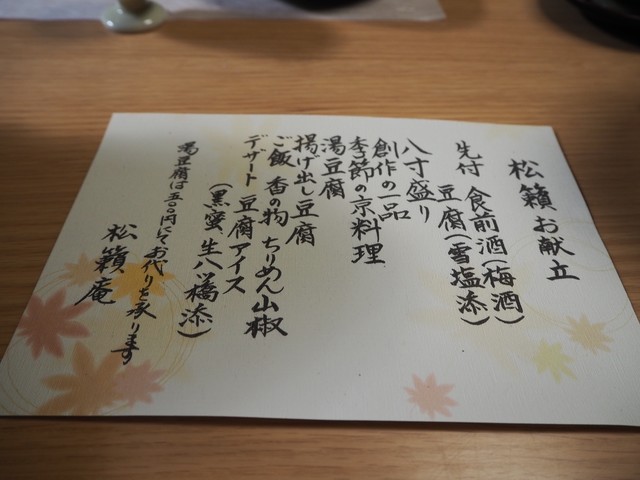 松籟お献立
先付 食前酒(梅酒)
豆腐(雪塩添)
八寸盛り
創作の一品
季節の京料理
湯豆腐
揚げ出し豆腐
ご飯 香の物 ちりめん山椒
デザート 豆腐アイス
(黒蜜 生八ツ橋添)
湯豆腐は五〇〇円にてお代りを承ります
松籟庵